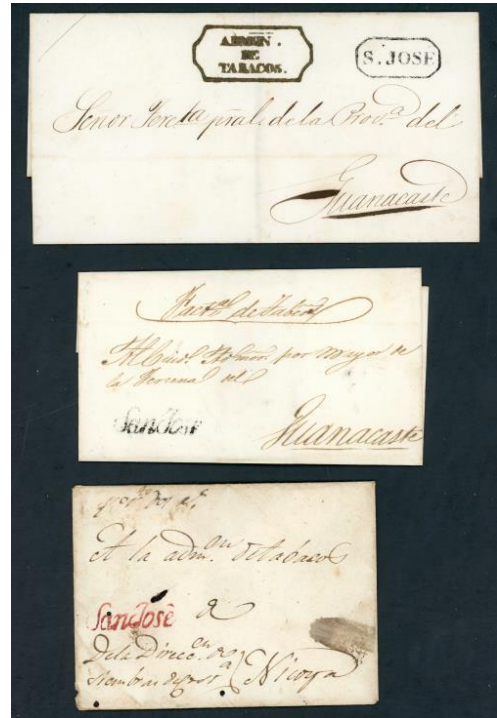 ADMON.
DE
TABACOS.
S. JOSE
Señor Terc.ta pral. de la Prov.a del
Guanacaste
Fact.a de Tabac.s
Al Ciud. Admor. por mayor de
la Tercena del
SanJose
Guanacaste
A la adm.on de tabacos
SanJosê
de
De la Direcc.on
Siembras
Nicoya